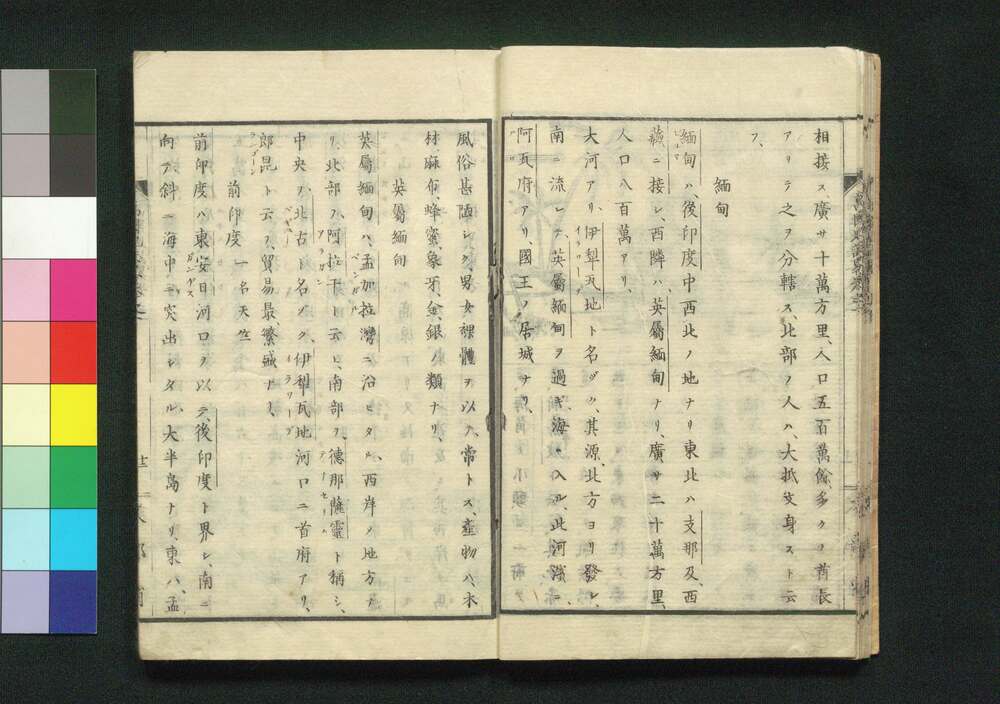 相接ス廣サ十萬方里、人口五百萬餘、多クノ酋長
アリテ之ヲ分轄ス、北部ノ人ハ、大抵文身スト云
フ、
緬甸
緬甸ハ、後印度中西北ノ地ナリ東北ハ支那及、西
藏ニ接シ、西隣ハ、英屬緬甸ナリ、廣サ二十萬方里、
人口八百萬アリ、
大河アリ、伊犂瓦地ト名ヅク、其源、北方ヨリ發シ、
南ニ流レテ、英屬緬甸ヲ過ギ、海ニ入ル、此河濱ニ、
阿瓦府アリ、國王ノ居城ナリ、
風俗甚陋シク男女裸體ヲ以テ、常トス、産物ハ、木
材、麻布、蜂蜜、象牙、金銀ノ類ナリ、
英屬緬甸
英屬緬甸ハ、孟加拉灣ニ沿ヒタル、西岸ノ地方ナ
リ、北部ヲ、阿拉干ト云ヒ、南部ヲ、德那薩靈ト稱シ、
中央ヲ、北古ト名ヅク、伊犂瓦地河口ニ首府アリ、
郎昆ト云フ、貿易最、繁盛ナリ、
前印度 一名天竺
前印度ハ東、安日河口ヲ以テ、後印度ト界シ、南ニ
向テ斜ニ海中ニ突出シタル、大半島ナリ、東ハ、孟